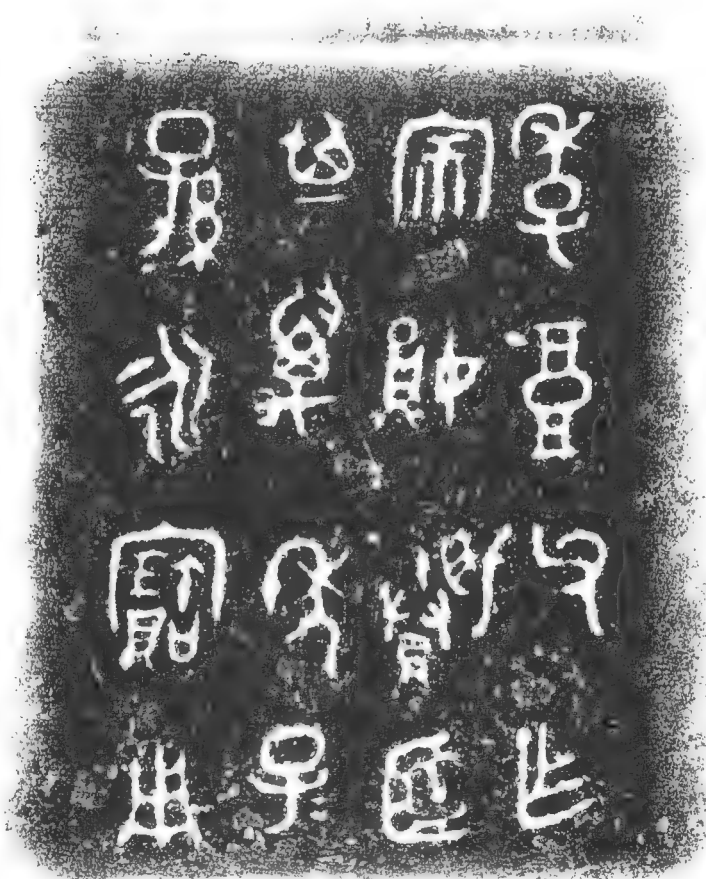 季良父乍
宗娟賸簠
其萬年子＝
孫＝永寶用